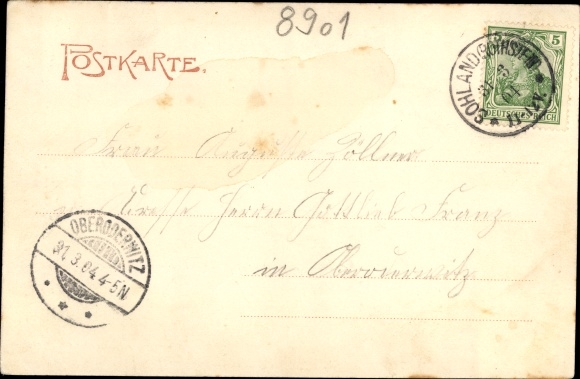 8901
POSTKARTE.
5
DEUTSCHES REICH
SOHLAND (ROTHSTEIN)
31 3 04
Frau Auguste Zöllner
Adresse Herrn Gottlieb Franz
in Oberoderwitz
OBERODERWITZ
31.3.04.4-5N